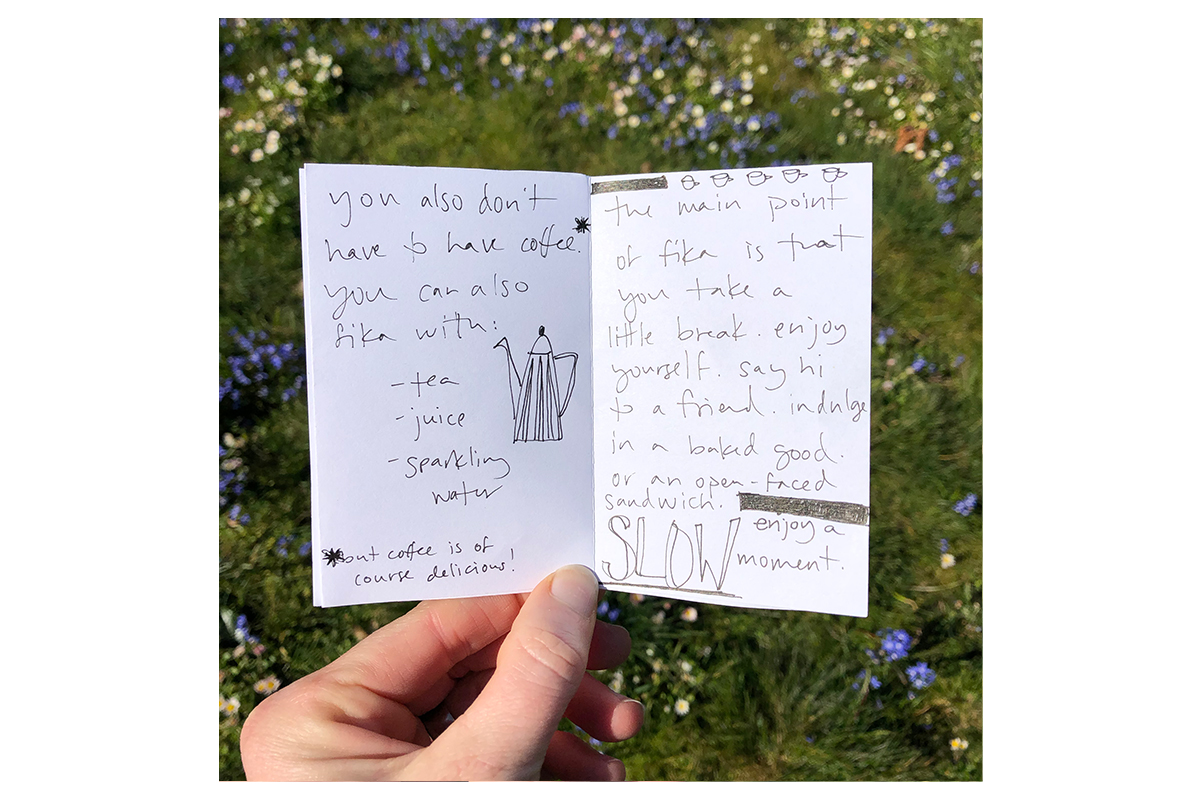 you also don't
have to have coffee.*
you can also
fika with:
- tea
- juice
- sparkling
water
*but coffee is of
course delicious!
the main point
of fika is that
you take a
little break. enjoy
yourself. say hi
to a friend. indulge
in a baked good.
or an open-faced
sandwich.
SLOW enjoy a
moment.